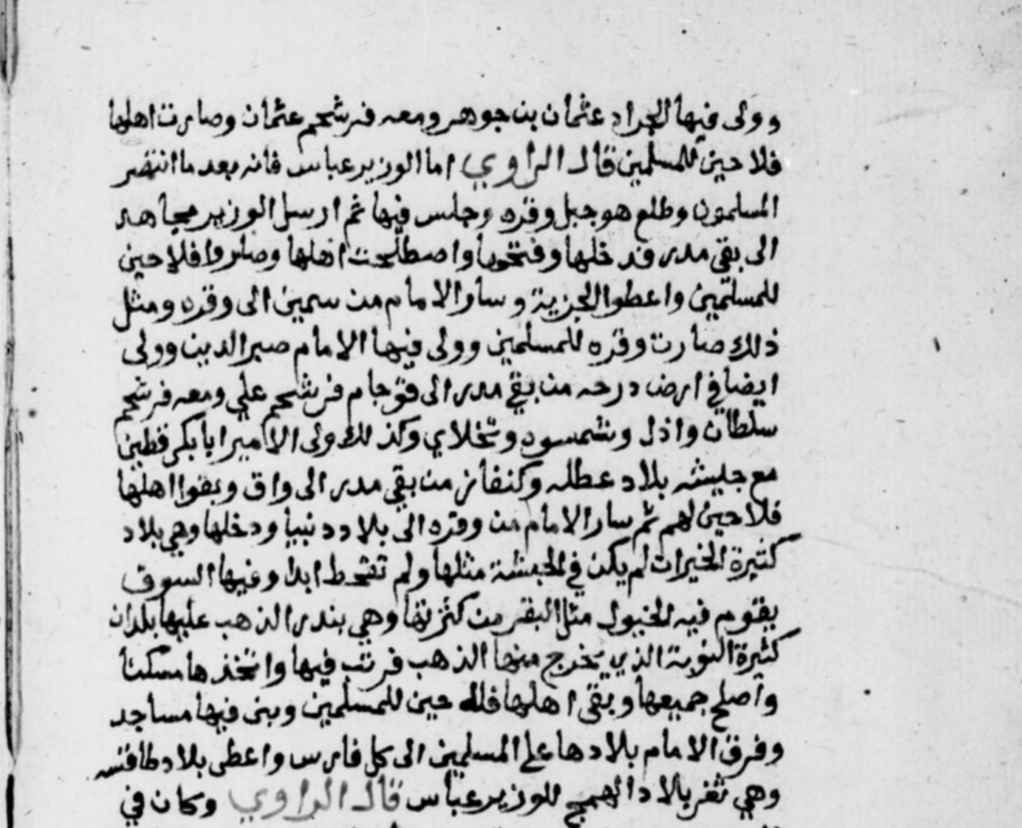 وولى فيها الجراد عثمان بن جوهر ومعه فرشحم عثمان وصارت اهلها
فلاحين للمسلمين قال الراوي اما الوزير عباس فانه بعد ما انتصر
المسلمون وطلع هو جبل وقره وجلس فيها ثم ارسل الوزير مجاهد
الى بقي مدر فدخلها وفتحها واصطلحت اهلها وصاروا فلاحين
للمسلمين واعطوا الجزية وسار الامام من سمين الى وقره ومثل
ذلك صارت وقره للمسلمين وولى فيها الامام صبر الدين وولى
ايضا في ارض درحه من بقي مدر الى قوجام فرشحم علي ومعه فرشحم
سلطان واذل وشمسوه وتخلاي وكذلك ولى الامير ابا بكر قطين
مع جيشه بلاد عطله وكنفانز من بقي مدر الى واق وبقوا اهلها
فلاحين لهم ثم سار الامام من وقره الى بلاد دنبيا ودخلها وهي بلاد
كثيرة الخيرات لم يكن في الحبشة مثلها ولم تقحط ابدا وفيها السوق
يقوم فيه الخيول مثل البقر من كثرتها وهي بندر الذهب عليها بلدان
كثيرة النوبة الذي يخرج منها الذهب فرتب فيها واتخذها مسكنا
واصلح جميعها وبقى اهلها فلاحين للمسلمين وبنى فيها مساجد
وفرق الامام بلادها على المسلمين الى كل فارس واعطى بلاد
وهي ثغر بلاد الهمج للوزير عباس قال الراوي وكان في